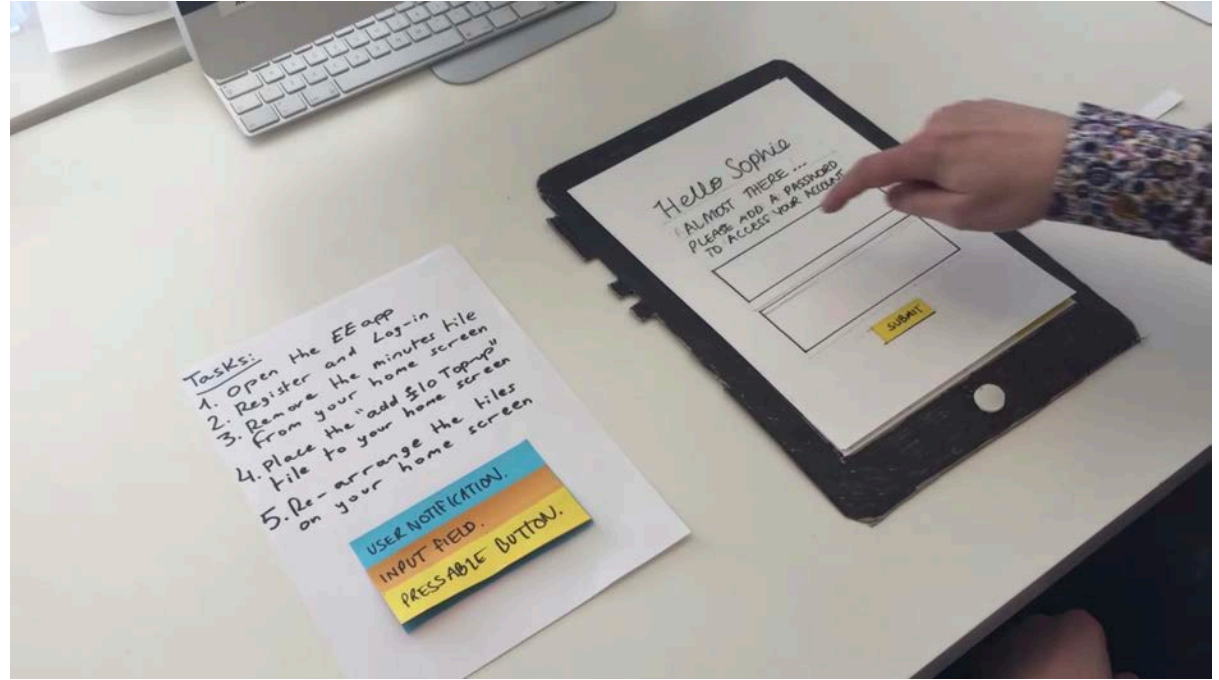 Tasks:
1. Open the EE app
2. Register and Log-in
3. Remove the minutes tile
from your home screen
4. Place the "add £10 Top-up"
tile to your home screen
5. Re-arrange the tiles
on your home screen
USER NOTIFICATION.
INPUT FIELD.
PRESSABLE BUTTON.
Hello Sophie
ALMOST THERE...
PLEASE ADD A PASSWORD
TO ACCESS YOUR ACCOUNT
SUBMIT